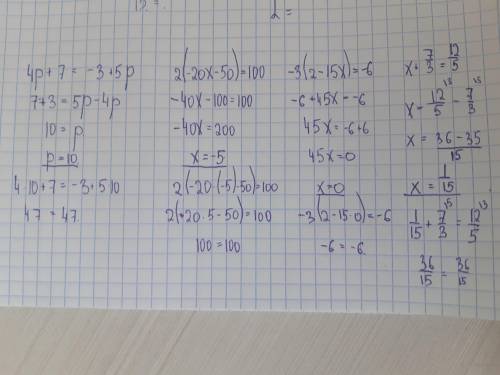 12 =
2 =
4p + 7 = -3 + 5p
7 + 3 = 5p - 4p
10 = p
p = 10
4·10 + 7 = -3 + 5·10
47 = 47.
2(-20x - 50) = 100
-40x - 100 = 100
-40x = 200
x = -5
2(-20·(-5) - 50) = 100
2(+20·5 - 50) = 100
100 = 100
-3(2 - 15x) = -6
-6 + 45x = -6
45x = -6 + 6
45x = 0
x = 0
-3(2 - 15·0) = -6
-6 = -6.
x + 7/3 = 12/5
x = 12/5 - 7/3
x = (36 - 35)/15
x = 1/15
1/15 + 7/3 = 12/5
36/15 = 36/15